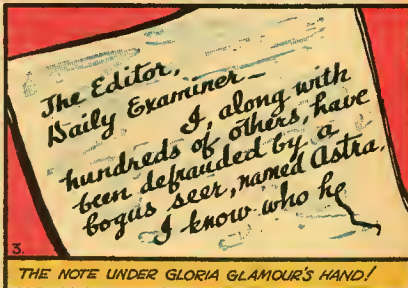 The Editor,
Daily Examiner—
I, along with
hundreds of others, have
been defrauded by a
bogus seer, named Astra.
I know who he
3.
THE NOTE UNDER GLORIA GLAMOUR'S HAND!